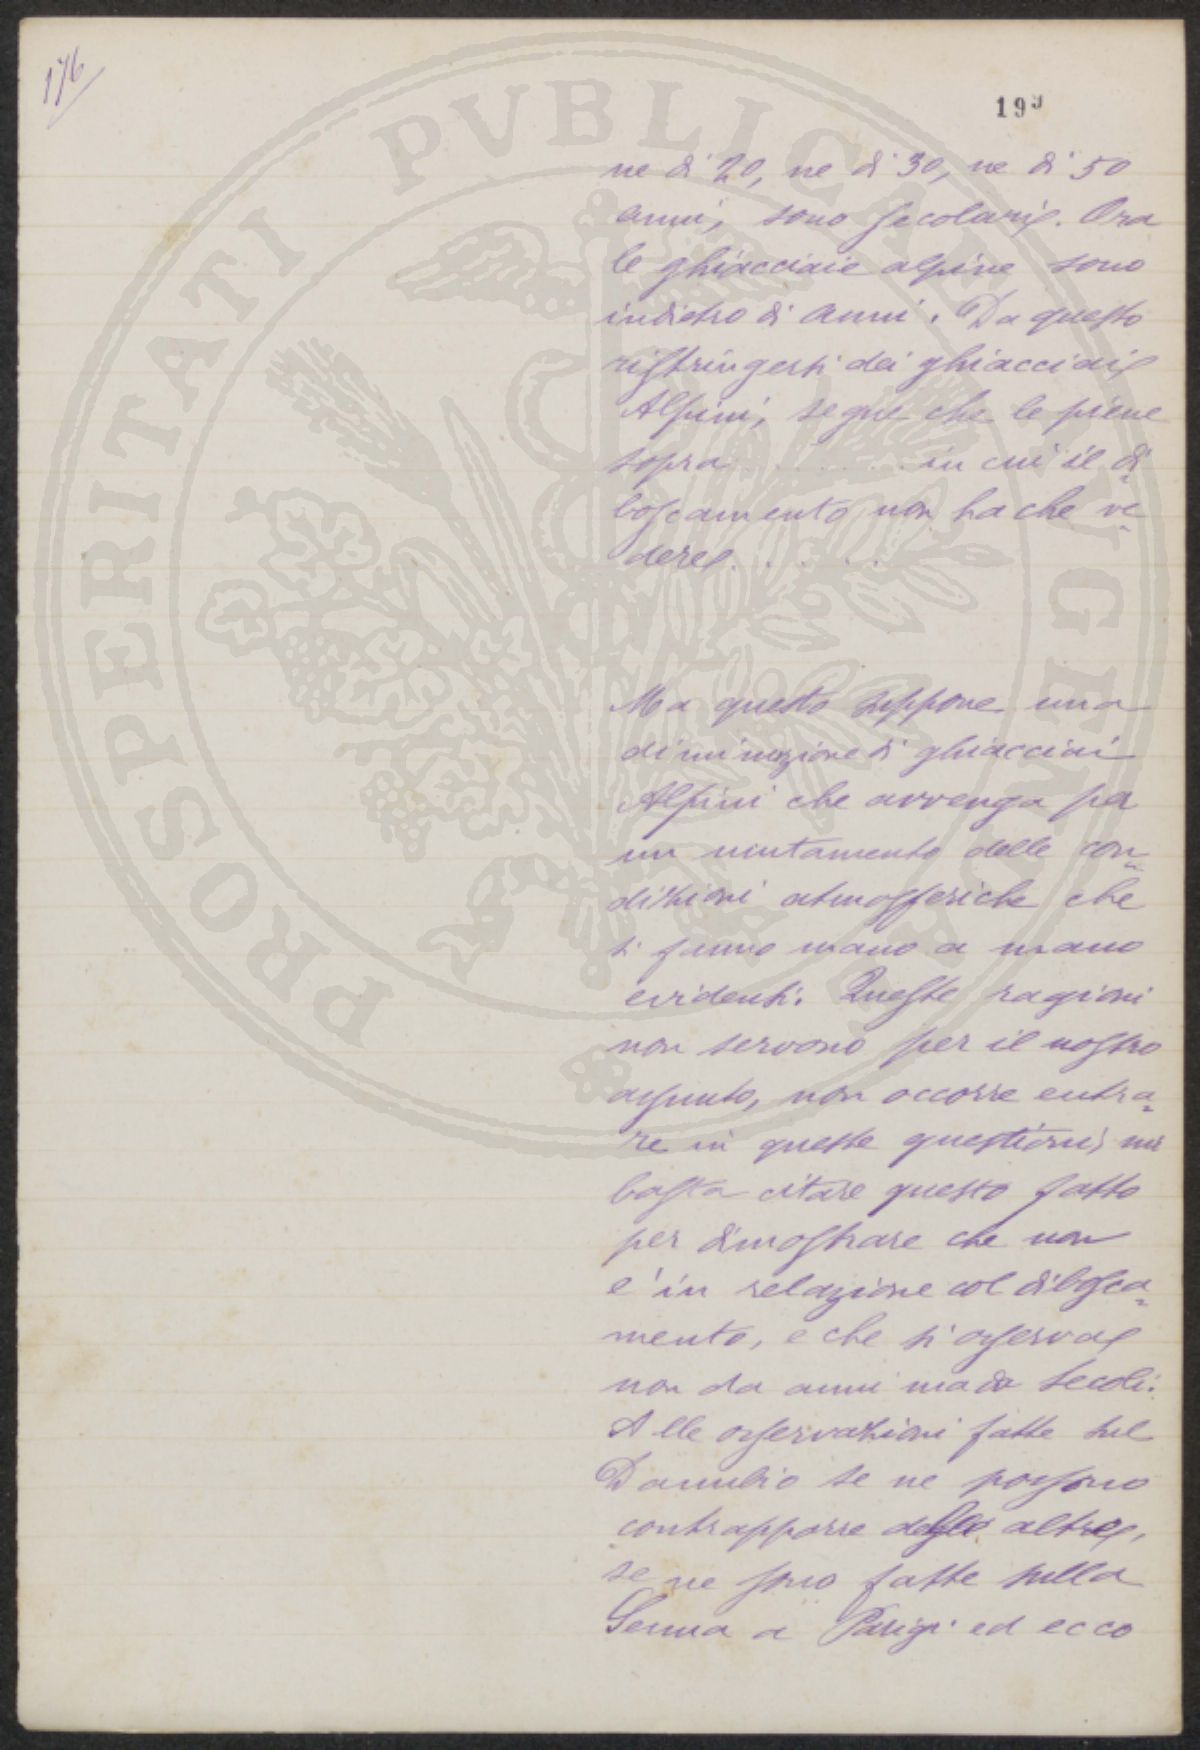 176
199
ne di 20, ne di 30, ne di 50
anni, sono secolari. Ora
le ghiacciaie alpine sono
indietro di anni. Da questo
ristringersi dei ghiacciai
Alpini, segue che le piene
sopra . . . . . . . in cui il di
boscamento non ha che ve
dere. . . . . .
Ma questo suppone una
diminuzione di ghiacciai
Alpini che avvenga per
un mutamento delle con
dizioni atmosferiche che
si fanno mano a mano
evidenti. Queste ragioni
non servono per il nostro
assunto, non occorre entra
re in queste questioni, mi
basta citare questo fatto
per dimostrare che non
e' in relazione col disbosca
mento, e che si osserva
non da anni ma da secoli.
Alle osservazioni fatte sul
Danubio se ne possono
contrapporre delle altre,
se ne sono fatte sulla
Senna a Parigi ed ecco
PROSPERITATI PVBLICAE AVGENDAE